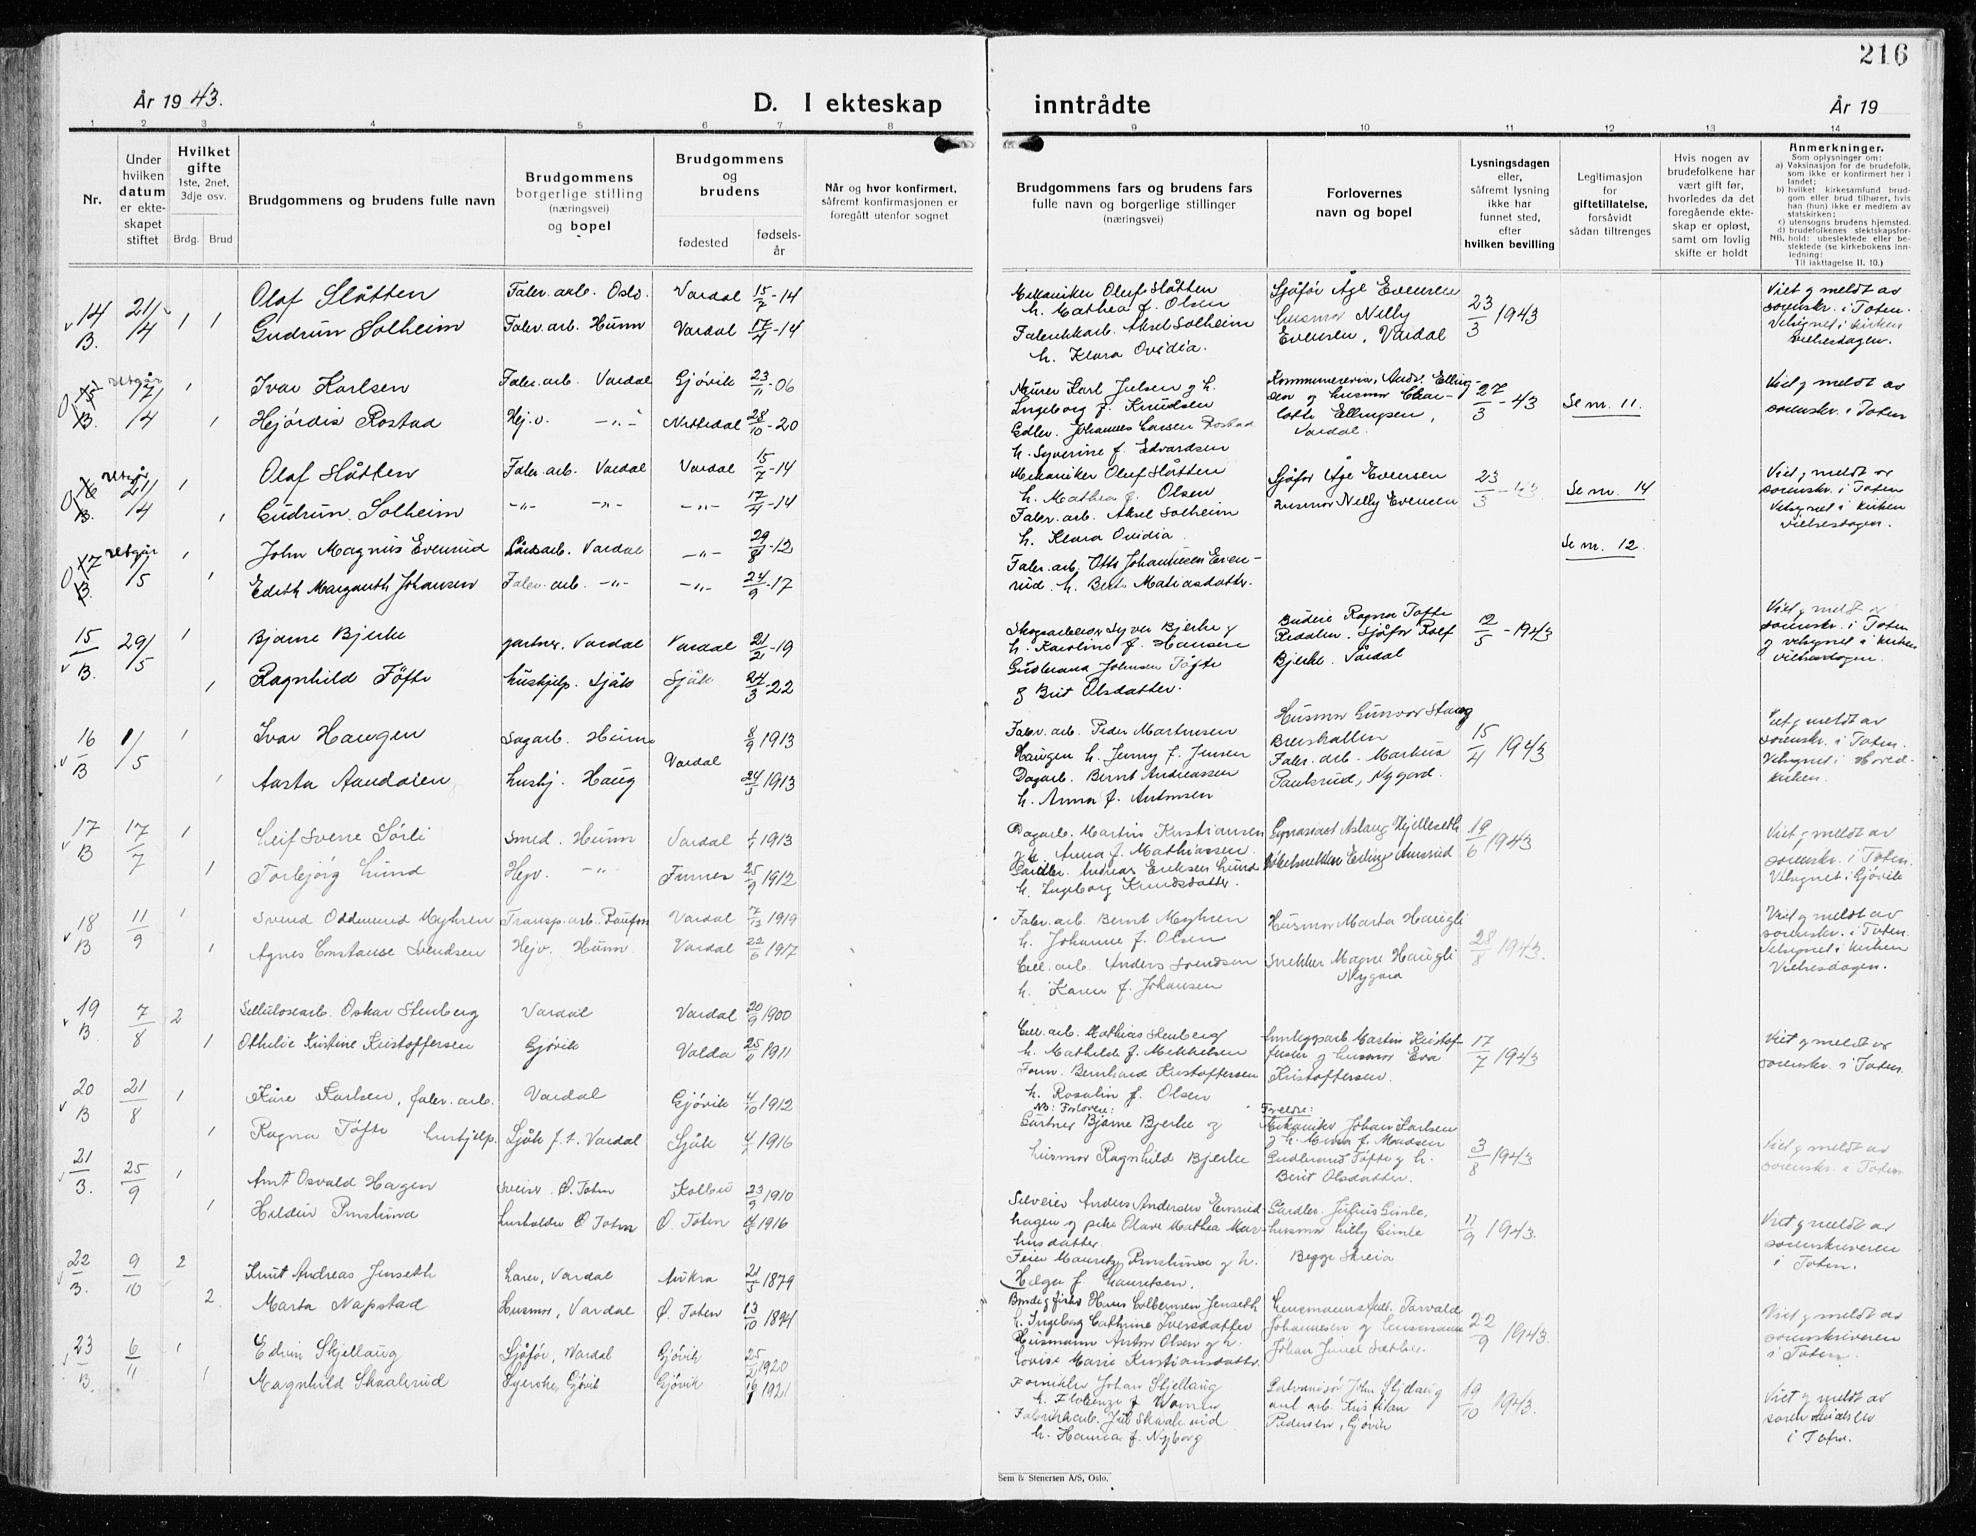 216
År 19 43.
D. I ekteskap inntrådte
År 19
1 2 3 4 5 6 7 8 9 10 11 12 13 14
Nr.
Under hvilken datum er ekteskapet stiftet
Hvilket gifte
1ste, 2net, 3dje osv.
Brdg. Brud
Brudgommens og brudens fulle navn
Brudgommens borgerlige stilling
(næringsvei)
og bopel
Brudgommens og brudens
fødested
fødselsår
Når og hvor konfirmert,
såfremt konfirmasjonen er
foregått utenfor sognet
Brudgommens fars og brudens fars
fulle navn og borgerlige stillinger
(næringsvei)
Forlovernes
navn og bopel
Lysningsdagen
eller,
såfremt lysning
ikke har
funnet sted,
efter
hvilken bevilling
Legitimasjon
for
giftetillatelse,
forsåvidt
sådan tiltrenges
Hvis nogen av
brudefolkene har
vært gift før,
hvorledes da det
foregående ekte-
skap er opløst,
samt om lovlig
skifte er holdt
Anmerkninger.
Som oplysninger om:
a) Vaksinasjon for de brudefolk,
som ikke er konfirmert her i
landet;
b) hvilket kirkesamfund brud-
gom eller brud tilhører, hvis
han (hun) ikke er medlem av
statskirken;
c) utensogns brudens hjemsted.
d) brudefolkenes slektskapsfor-
NB. hold: ubeslektede eller be-
slektede (se kirkebokens inn-
ledning:
Til iakttagelse II. 10.)
14 B. 21/4 1 1
Olaf Slåtten Faler. arb. Oslo. Vardal 15/7-14
Gudrun Solheim Faler. arb. Hunn Vardal 17/4-14
Mekaniker Oluf Slåtten
h. Mathea f. Olsen
Akel Solheim
h. Klara Ovidia.
Sjåfør Åge Evensen
husmor Nelly
Evensen, Vardal
23/3 1943
Viet g meldt av
sorenskr. i Toten.
Velsignet i kirken
vielsesdagen.
15 B. Utgår 17/4 1 1
Ivar Karlsen Faler. arb. Vardal Gjøvik 23/11-06
Hejørdis Rostad Hej.v. -"- Nittedal 28/10-20
Murer Karl Julsen g h.
Ingeborg f. Knudsen
Johannes Larsen Rostad
h. Syverine f. Edvardsen
Andr. Elling-
sen g husmor Char-
lotte Ellingsen,
Vardal.
27/3-43
Se nr. 11.
Viet g meldt av
sorenskr. i Toten
16 B. Utgår 21/4 1 1
Olaf Slåtten Faler. arb. Vardal Vardal 15/7-14
Gudrun Solheim -"- -"- -"- 17/4-14
Mekaniker Oluf Slåtten
h. Mathea f. Olsen
Faler. arb. Aksel Solheim
h. Klara Ovidia.
Sjåfør Åge Evensen
husmor Nelly Evensen
23/3-43
Se nr. 14
Viet g meldt av
sorenskr. i Toten
Velsignet i kirken
vielsesdagen.
17 B. Utgår 1/5 1 1
John Magnus Evenrud Vardal -"- 29/8-12
Edith Margareth Johansen Faler. arb. -"- -"- 24/9-17
Faler. arb. Otto Johannessen Even-
rud. h. Berte Matiasdatter.
Se nr. 12.
15 B. 29/5 1 1
Bjarne Bjerke gartner. Vardal Vardal 21/2-19
Ragnhild Töfte hushjelp. Sjåk Sjåk 24/3-22
Skogsarbeider Syver Bjerke g
h. Karoline f. Hansen
Gudbrand Johnsen Töfte
g Brit Olsdatter.
Budeie Ragna Töfte
Redalen. Sjåfør Rolf
Bjerke. Vardal
12/5-1943
Viet g meldt av
sorenskr. i Toten
g velsignet i kirken
vielsesdagen.
16 B 1/5 1 1
Ivar Haugen Sagarb. Hunn Vardal 8/9 1913
Aasta Aandalen hushj. Haug 24/5 1913
Faler. arb. Peder Martinsen
Haugen h. Jenny f. Jensen
Dagarb. Bernt Andreassen
h. Anna f. Antonsen
Husmor Gunvor Stang
Breiskallen
Faler. arb. Markus
Paulsrud, Nygard.
15/4 1943
Viet g meldt av
sorenskr. i Toten.
Velsignet i Hoved-
kirken.
17 B 17/7 1 1
Leif Sverre Sørli Smed. Hunn Vardal 1913
Torbjørg Lund Hejv. -"- Furnes 25/9 1912
Dagarb. Martin Kristiansen
g h. Anna f. Mathiassen.
Gårdbr. Andreas Eriksen Lund
h. Ingeborg Knudsdatter.
Gymnasiast Aslaug Hjelleseth
Møbelsnekker Erling Amsrud
19/6 1943
Viet g meldt av
sorenskr. i Toten.
Velsignet i Gjövik
18 B 11/9 1 1
Svend Oddmund Myhren Transp. arb. Raufoss Vardal 7/12 1919
Agnes Constanse Svendsen Hejv. Hunn. Vardal 22/6 1917
Faler. arb. Bernt Myhren
h. Johanne f. Olsen
Cell. arb. Anders Svendsen
h. Karen f. Johansen
Husmor Marta Haugli
Snekker Magne Haugli
Nygard
28/8 1943.
Viet g meldt av
sorenskr. i Toten.
Velsignet i kirken
Vielsesdagen.
19 B. 7/8 2 1
Cellulosearb. Oskar Stenberg Vardal Vardal 20/9 1900
Othilie Kristine Kristoffersen Gjøvik Valda 25/11 1911
Cell. arb. Mathias Stenberg
h. Mathilde f. Mikkelsen
Form. Bernhard Kristoffersen
h. Rosalin f. Olsen
Martin Kristof-
fersen g husmor Eva
Kristoffersen.
17/7 1943
Viet g meldt av
sorenskr. i Toten.
20 B 21/8 1 1
Kåre Karlsen, faler. arb. Vardal Gjövik 4/10 1912
Ragna Töfte hushjelp. Sjåk f. t. Vardal Sjåk 1916
NB: Forlovere:
Gartner Bjarne Bjerke og
husmor Ragnhild Bjerke
Foreldre:
Mekaniker Johan Karlsen
g h. f. Madsen
Gudbrand Töfte g h.
Berit Olsdatter.
3/8 1943
Viet g meldt av
sorenskr. i Toten.
21 3. 25/9 1 1
Arnt Osvald Hagen Sveiser. Ø. Toten Kolbu 23/9 1910
Ø Toten Ø. Toten 1916
Anders Andersen Evenrud-
hagen g pike Olave Mathea Mar-
husdatter.
h.
Helga f. Lauritsen.
Gårdbr. Julius Gimle,
husmor Lilly Gimle
Begge Skreia
11/9 1943.
Viet g meldt av
sorenskriveren
i Toten.
22 3. 9/10 2 2.
Knut Andreas Jenseth Lærer, Vardal Aukra 21/5 1879
Marta Napstad Husmor, Vardal Ø. Toten 13/10 1894
Hans Jenseth
h. Ingeborg Cathrine Iversdatter
Husmann Anton Olsen g h.
Lovise Marie Kristiansdatter.
Lensmannsfullm. Torvald
Johannesen og lensmann
Johan
22/9 1943.
Viet g meldt av
sorenskriveren
i Toten.
23 B. 6/11 1 1
Edvin Skjellaug Sjåfør, Vardal Gjövik 25/2 1920
Magnhild Skaalerud Syerske, Gjövik Gjövik 1921
Johan Skjellaug
h.
Fabrikkarb. Jul. Skaalerud
h. Hanna f. Nyborg
John Skjellaug
arb. Kristian
Pedersen, Gjövik
19/10 1943.
Viet g meldt av
sorenskriver
i Toten.
Sem & Stenersen A/S, Oslo.